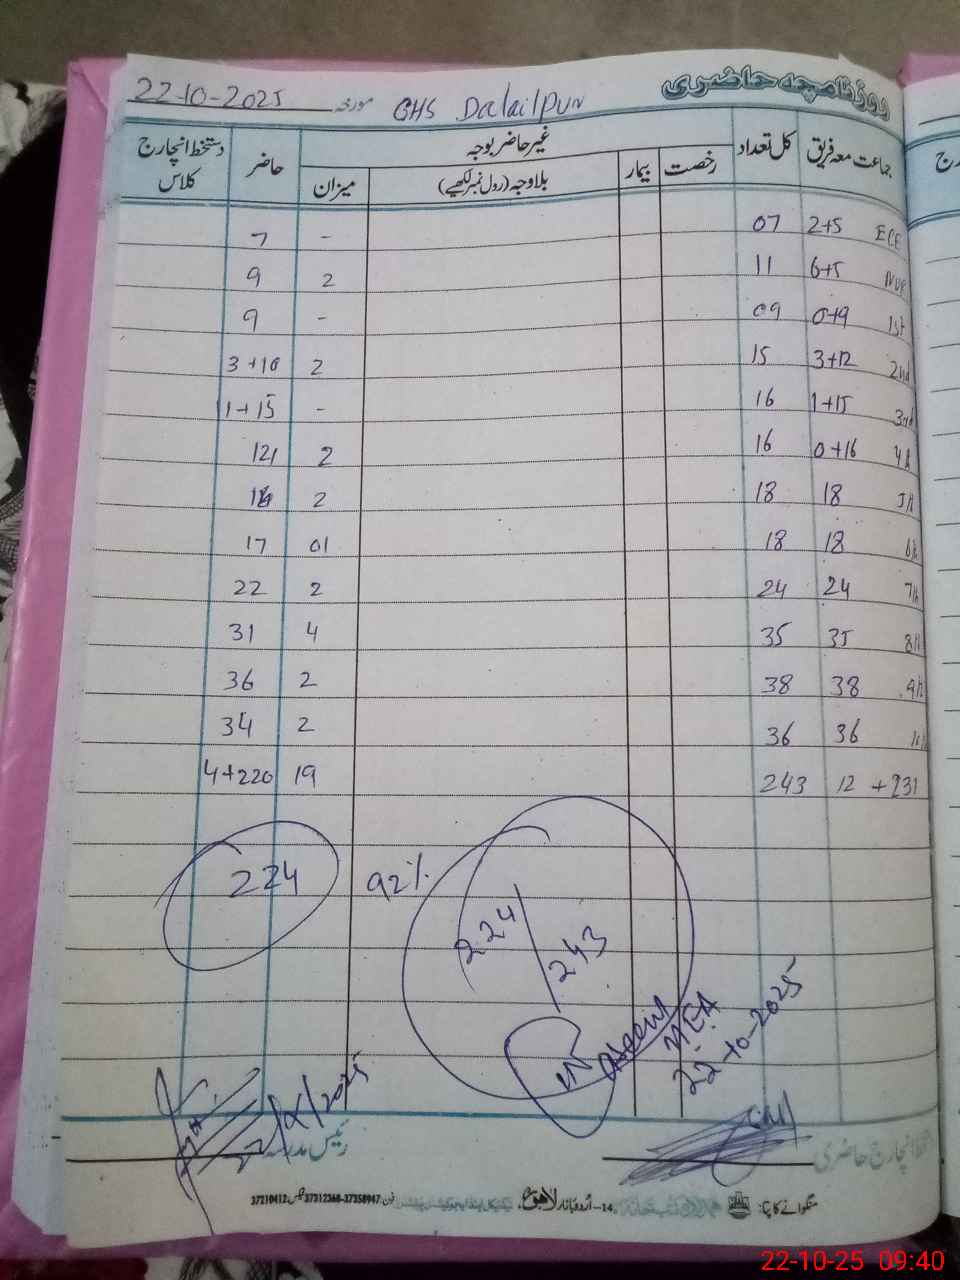 روزنامچہ حاضری
GHS Dalailpur مورخہ 22-10-2025
جماعت معہ فریق کل تعداد غیر حاضر بوجہ حاضر دستخط انچارج کلاس
رخصت بیمار بلاوجہ (رول نمبر لکھیے) میزان
ECE 2+5 07 - 7
NUR 6+5 11 2 9
1st 0+9 09 - 9
2nd 3+12 15 2 3+10
3rd 1+15 16 - 1+15
4th 0+16 16 2
5th 18 18 2
6th 18 18 01 17
7th 24 24 2 22
8th 35 35 4 31
9th 38 38 2 36
10th 36 36 2 34
12 + 231 243 19 4+220
224 92%
224/243
MEA
22-10-2025
رئیس مدرسہ
دستخط انچارج حاضری
منگوانے کا پتہ:
14-اُردو بازار لاہور
فون: 37312368-37358947 فیکس: 37210412
22-10-25 09:40